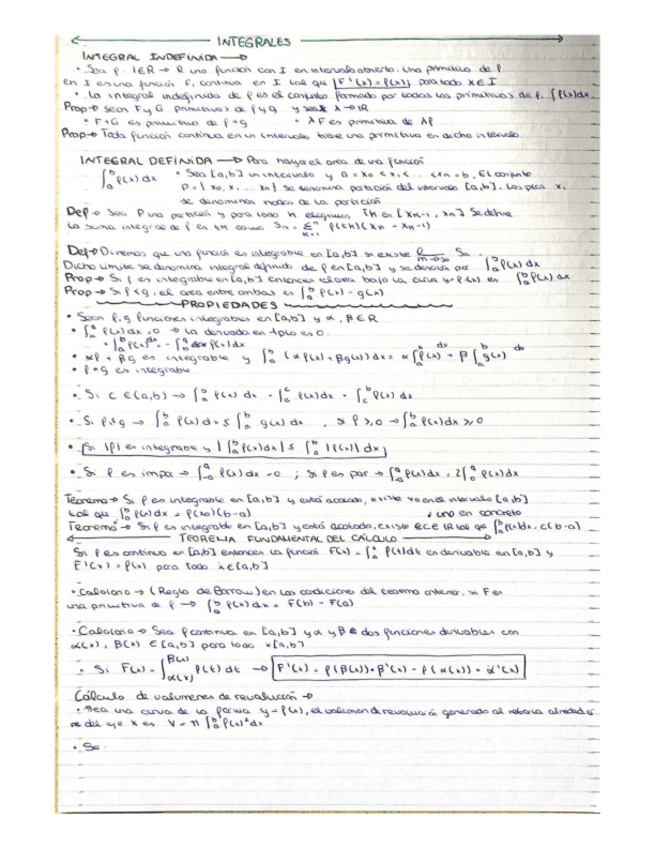 INTEGRALES
INTEGRAL INDEFINIDA →
• Sea f: I∈R → R una función con I en intervalo abierto. Una primitiva de f
en I es una función F, continua en I tal que F'(x) = f(x), para todo x∈I
• La integral indefinida de f es el conjunto formado por todas las primitivas de f. ∫f(x)dx
Prop→ sean F y G primitivas de f y g y sea λ→IR
• F+G es primitiva de f+g • λF es primitiva de λf
Prop→ Toda función continua en un intervalo tiene una primitiva en dicho intervalo
INTEGRAL DEFINIDA → Para hayar el area de una función
∫ₐᵇ f(x) dx • Sea [a,b] un intervalo y a = x₀ < x₁ < ... < xn = b. El conjunto
P = { x₀, x₁, ... xn} se denomina partición del intervalo [a,b]. Los ptos x,
se denominan nodos de la partición
Def→ Sea P una partición y para todo k elegimos tk en [xk-1, xk] Se define
la suma integral de f en tk como Sn = Σ f(tk)(xk - xk-1)
Def→ Diremos que una función es integrable en [a,b] si existe Sn
Dicho límite se denomina integral definida de f en [a,b] y se denota por ∫ₐᵇ f(x) dx
Prop→ Si f es integrable en [a,b] entonces el area bajo la curva y=f(x) es ∫ₐᵇ f(x) dx
Prop→ Si f<g, el area entre ambas es ∫ₐᵇ f(x) - g(x)
PROPIEDADES
• Sean f,g funciones integrables en [a,b] y α, β∈R
• ∫ₐᵃ f(x) dx = 0 → La derivada en 1 pto es 0
• αf + βg es integrable y ∫ₐᵇ (αf(x) + βg(x)) dx = α∫ₐᵇ f(x) dx + β∫ₐᵇ g(x) dx
• f·g es integrable
• Si c ∈(a,b) → ∫ₐᵇ f(x) dx = ∫ₐᶜ f(x)dx + ∫ f(x) dx
• Si f≤g → ∫ₐᵇ f(x) dx ≤ ∫ₐᵇ g(x) dx , si f ≥ 0 → ∫ₐᵇ f(x)dx ≥ 0
• Si |f| es integrable y |∫ₐᵇ f(x)dx| ≤ ∫ₐᵇ |f(x)| dx
• Si f es impar → ∫ f(x) dx = 0 ; Si f es par → ∫ f(x)dx = 2∫ f(x)dx
Teorema→ Si f es integrable en [a,b] y está acotada, existe x₀ en el intervalo [a,b]
tal que ∫ₐᵇ f(x)dx = f(x₀)(b-a) uno en concreto
Teorema→ Si f es integrable en [a,b] y está acotada, existe c∈IR tal que ∫ₐᵇ f(x)dx = c(b-a)
TEOREMA FUNDAMENTAL DEL CÁLCULO
Si f es continua en [a,b] entonces la función F(x) = ∫ₐˣ f(t)dt es derivable en [a,b] y
F'(x) = f(x) para todo x∈[a,b]
• Colorario → (Regla de Barrow) en las condiciones del teorema anterior, si F es
una primitiva de f → ∫ₐᵇ f(x) dx = F(b) - F(a)
• Colorario → Sea f continua en [a,b] y α y β dos funciones derivables con
α(x), β(x) ∈[a,b] para todo x[a,b]
• Si F(x) = ∫ β(x) α(x) f(t) dt → F'(x) = f(β(x))·β'(x) - f(α(x))·α'(x)
Cálculo de volumenes de revolución →
• Sea una curva de la forma y=f(x), el volumen de revolución generado al rotarla alrededor
del eje x es V = π ∫ₐᵇ f(x)² dx
• Se